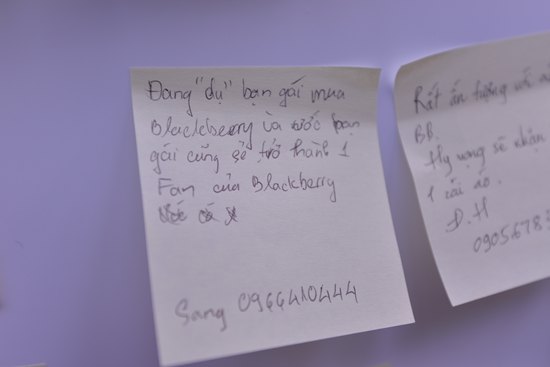 Đang "dụ" bạn gái mua
Blackberry và ước bạn
gái cũng sẽ trở thành 1
Fan của Blackberry
Sang 0966410444
Rất ấn tượng với
BB.
Hy vọng sẽ nhận
1 cái áo.
Đ.H
0905678